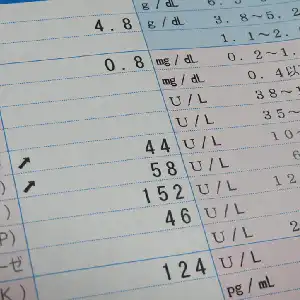 g/dL
4.8 g/dL 3.8~5.2
1.1~2.
0.8 mg/dL 0.2~1.
mg/dL 0.4以
U/L 38~1
U/L 35~
44 U/L 10
58 U/L 6
152 U/L 12
46 U/L
P) U/L 2
ーゼ
124 U/L
K) pg/mL 2